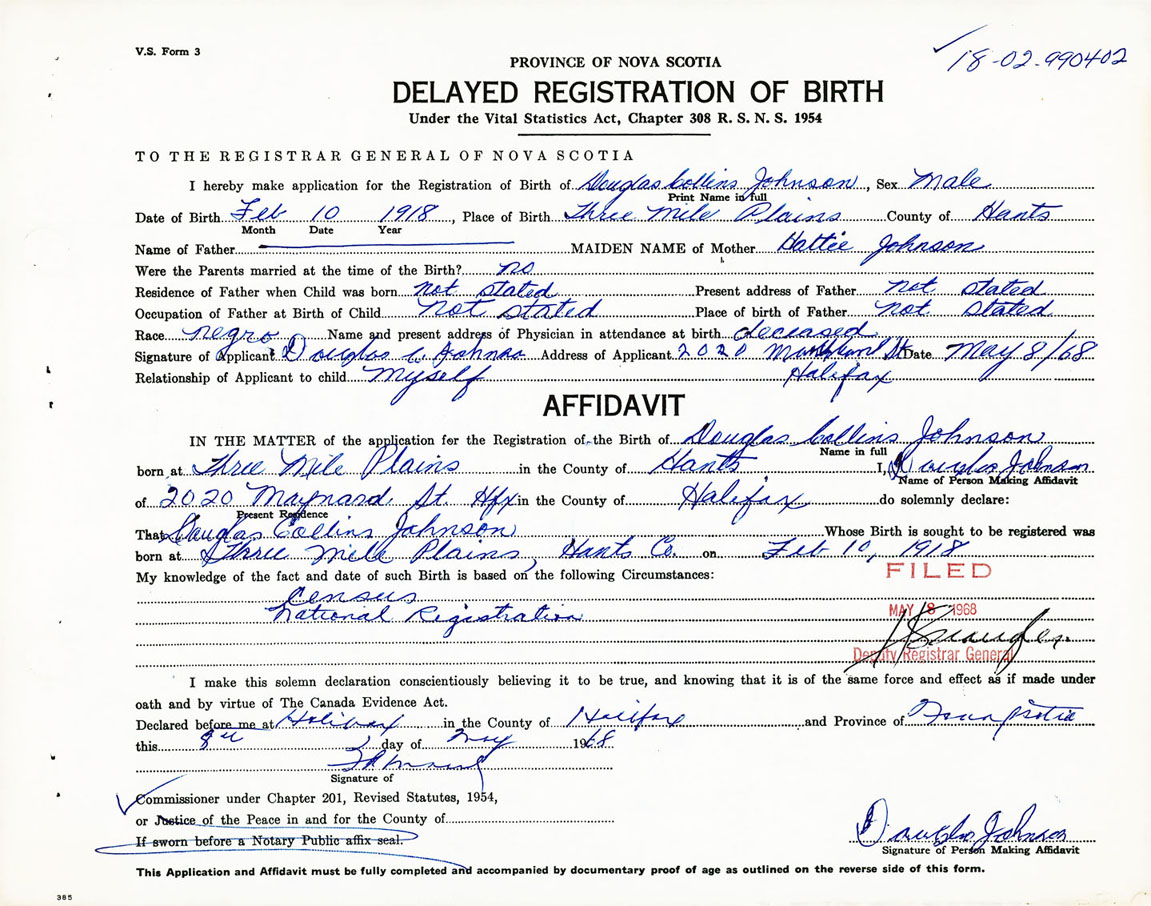 V.S. Form 3
18-02-990402
PROVINCE OF NOVA SCOTIA
DELAYED REGISTRATION OF BIRTH
Under the Vital Statistics Act, Chapter 308 R. S. N. S. 1954
TO THE REGISTRAR GENERAL OF NOVA SCOTIA
I hereby make application for the Registration of Birth of Douglas Collins Johnson, Sex Male
Print Name in full
Date of Birth Feb 10 1918, Place of Birth Three Mile Plains County of Hants
Month Date Year
Name of Father MAIDEN NAME of Mother Hattie Johnson
Were the Parents married at the time of the Birth? no
Residence of Father when Child was born not stated Present address of Father not stated
Occupation of Father at Birth of Child not stated Place of birth of Father not stated
Race negro Name and present address of Physician in attendance at birth deceased
Signature of Applicant Douglas C Johnson Address of Applicant 2020 St Date May 8/68
Relationship of Applicant to child myself Halifax
AFFIDAVIT
IN THE MATTER of the application for the Registration of the Birth of Douglas Collins Johnson
Name in full
born at Three Mile Plains in the County of Hants I, Douglas Johnson
Name of Person Making Affidavit
of 2020 Maynard St. Hfx in the County of Halifax do solemnly declare:
Present Residence
That Douglas Collins Johnson Whose Birth is sought to be registered was
born at Three Mile Plains, Hants Co. on Feb 10, 1918
My knowledge of the fact and date of such Birth is based on the following Circumstances:
FILED
Census
National Registration
MAY 8 1968
Deputy Registrar General
I make this solemn declaration conscientiously believing it to be true, and knowing that it is of the same force and effect as if made under
oath and by virtue of The Canada Evidence Act.
Declared before me at Halifax in the County of Halifax and Province of Nova Scotia
this 8th day of May 1968
Signature of
Commissioner under Chapter 201, Revised Statutes, 1954,
or Justice of the Peace in and for the County of
If sworn before a Notary Public affix seal.
Douglas Johnson
Signature of Person Making Affidavit
This Application and Affidavit must be fully completed and accompanied by documentary proof of age as outlined on the reverse side of this form.
385